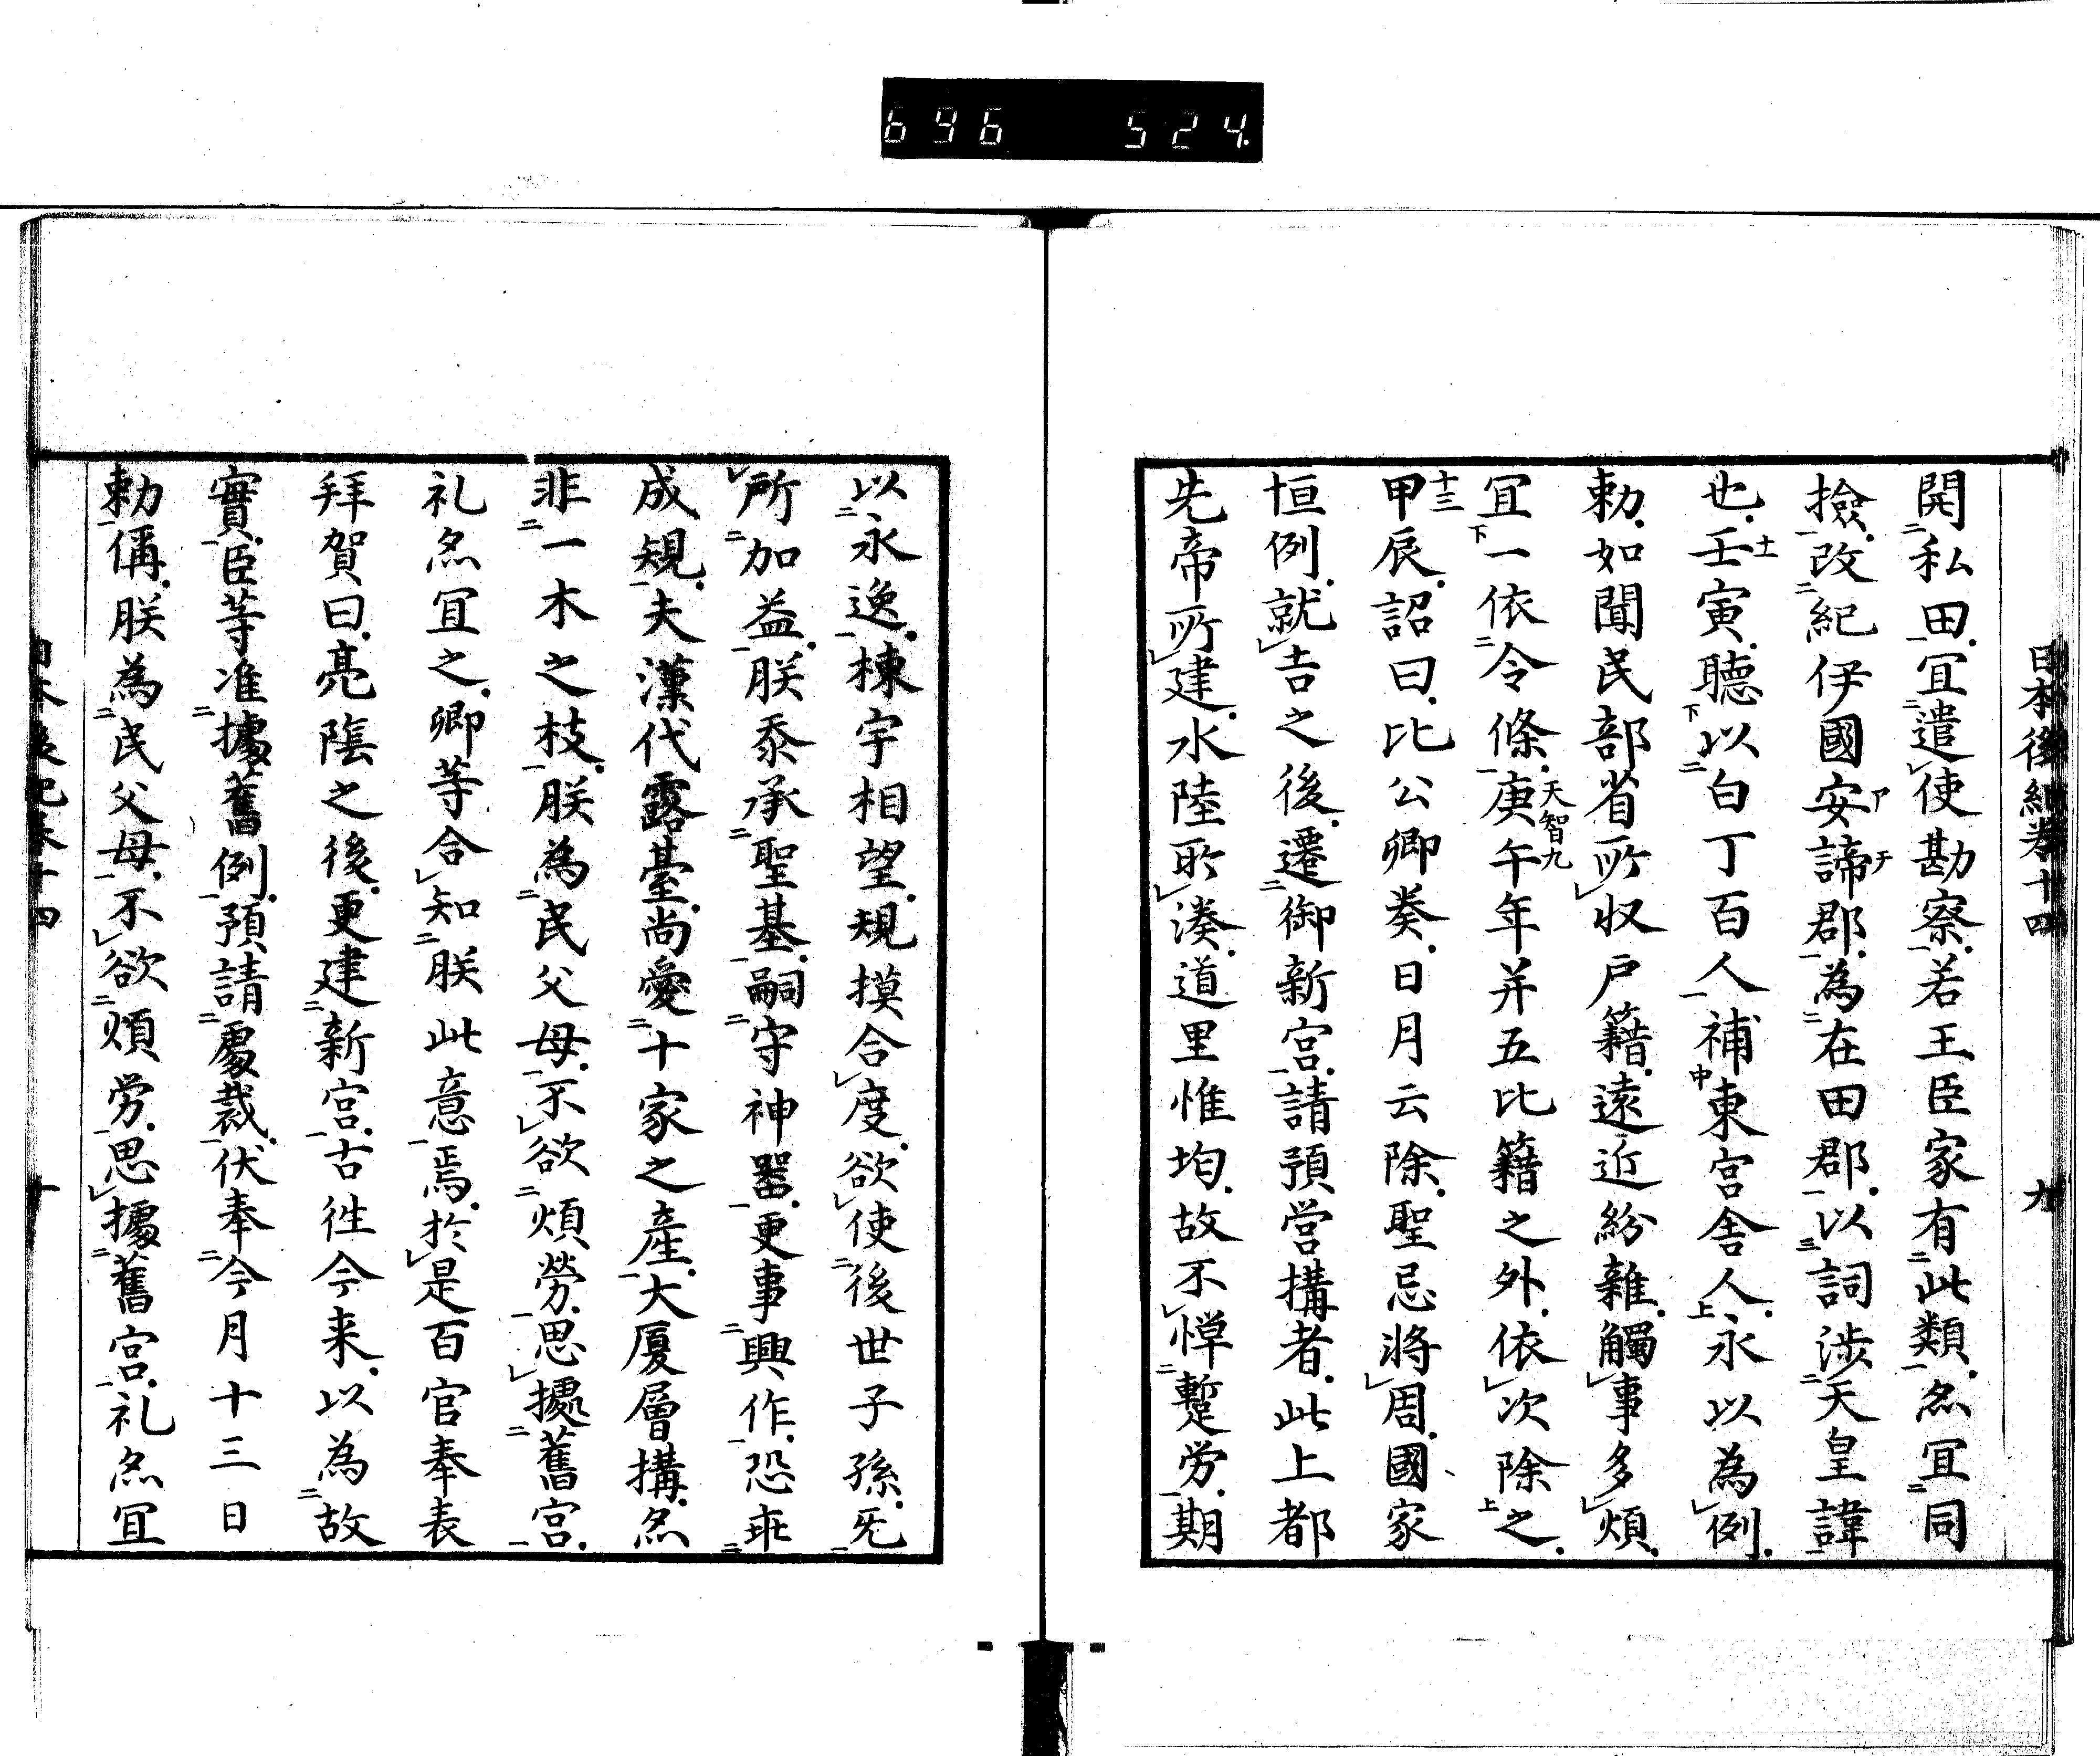 696 524
日本後紀卷十四 九
開私田宜遣使勘察若王臣家有此類亦宜同
撿改紀伊國安諦郡為在田郡以詞渉天皇諱
也壬寅聽以白丁百人補東宮舎人永以為例
勅如聞民部省所収戸籍遠近紛雜觸事多煩
冝一依令條庚午年并五比籍之外依次除之
甲辰詔曰比公卿奏日月云除聖忌將周國家
恒例就吉之後遷御新宮請預営搆者此上都
先帝所建水陸所湊道里惟均故不憚蹔労期
以永逸棟宇相望規摸合度欲使後世子孫旡
所加益朕忝承聖基嗣守神器更事興作恐乖
成規夫漢代露臺尚愛十家之産大厦層搆亦
非一木之枝朕為民父母不欲煩勞思據舊宮
礼亦冝之卿等合知朕此意焉於是百官奉表
拜賀曰亮陰之後更建新宮古徃今来以為故
實臣等准據舊例預請處裁伏奉今月十三日
勅偁朕為民父母不欲煩労思據舊宮礼亦冝